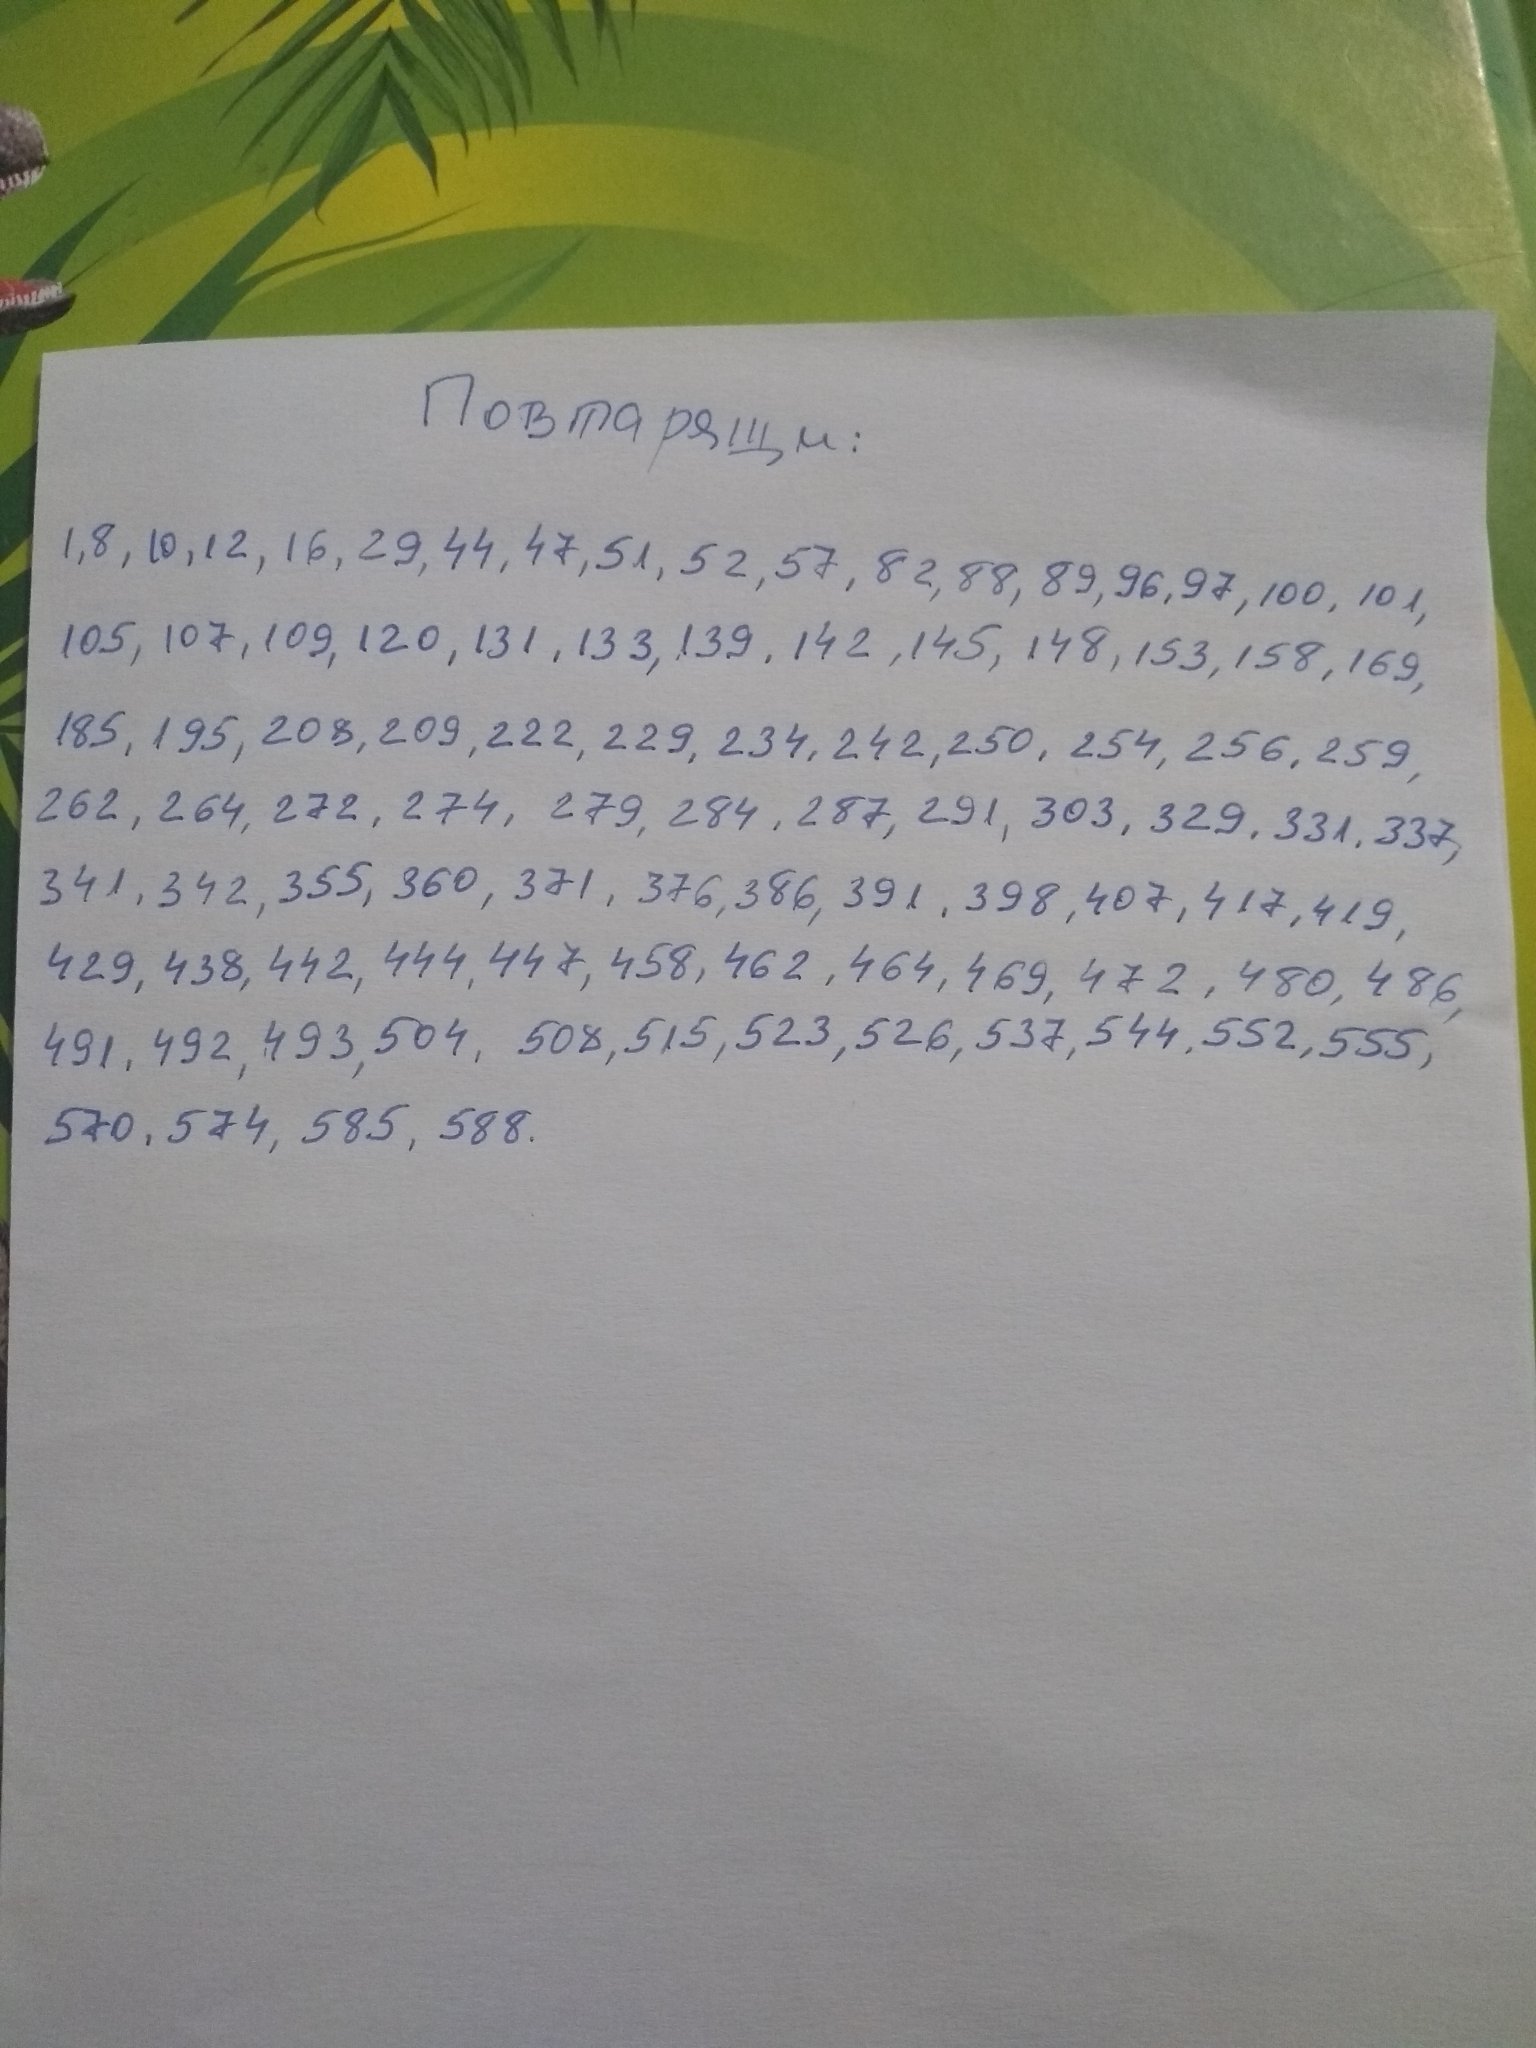 Повтарящи:
1,8, 10,12, 16, 29,44,47,51, 52,57, 82,88,89,96,97,100,101,
105,107,109,120,131,133,139,142,145,148,153,158,169,
185,195,208,209,222,229,234,242,250,254,256,259,
262,264,272,274, 279,284,287,291,303,329,331,337,
341,342,355,360,371,376,386,391,398,407,417,419,
429,438,442,444,447,458,462,464,469,472,480,486,
491,492,493,504, 508,515,523,526,537,544,552,555,
570,574,585,588.